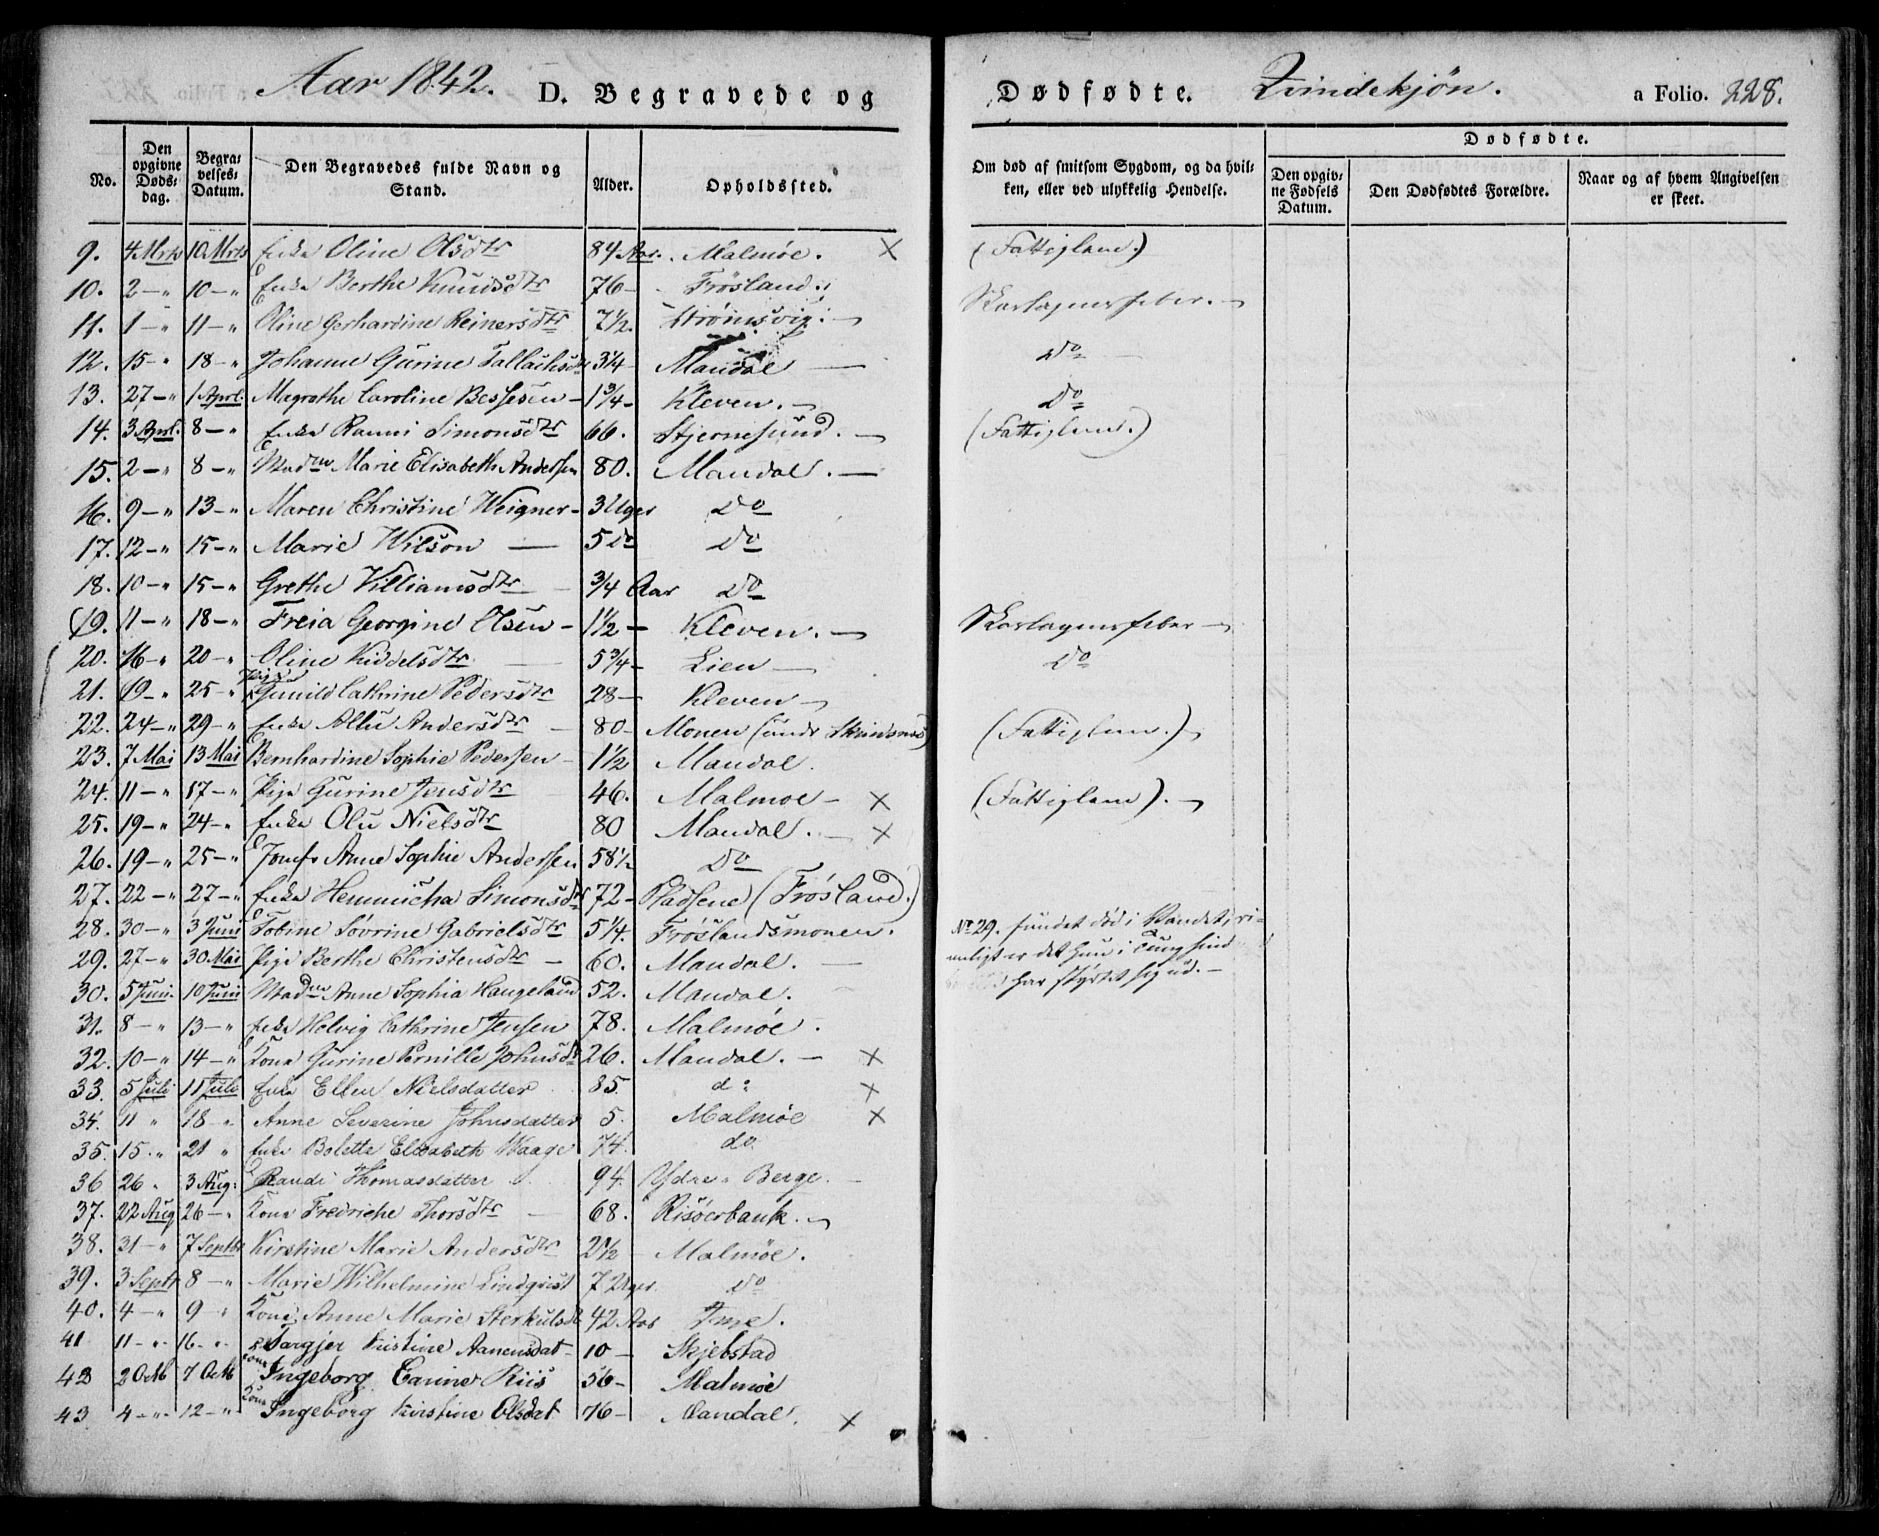 Aar 1842. D. Begravede og Dødfødte. Qvindekjøn. a Folio. 228.
No.
Den opgivne Døds-dag.
Begra-velses-Datum.
Den Begravedes fulde Navn og Stand.
Alder.
Opholdssted.
Om død af smitsom Sygdom, og da hvil-ken, eller ved ulykkelig Hendelse.
Dødfødte.
Den opgiv-ne Fødsels Datum.
Den Dødfødtes Forældre.
Naar og af hvem Angivelsen er skeet.
9. 4 Mrts 10 Mrts Enke Oline Olsdtr 84 Aar. Malmøe. × (Fattiglem.)
10. 2 - " 10 - " Enke Berthe Knudsdtr 76 - Frøsland.
11. 1 - " 11 - " Oline Gerhardine Reinersdtr 7½. Strømsvig. Skarlagensfeber.
12. 15 - " 18 - " Johanne Gurine Tallachsdtr 3¼ - Mandal Do
13. 27 - " 1 Aprl. Magrethe Caroline Bessesen - 1¾ - Kleven. Do
14. 3 Aprl. 8 - " Enke Ranni Simonsdtr 66. Stjernesund. (Fattiglem.)
15. 2 - " 8 - " Madm Marie Elisabeth Andersen 80. Mandal.
16. 9 - " 13 - " Maren Christine Weigner - 3 Uger Do
17. 12 - " 15 - " Marie Wilson 5 Do Do
18. 10 - " 15 - " Grethe Villiamsdtr ¾ Aar Do
19. 11 - " 18 - " Freia Georgine Olsen - 1½ - Kleven. Skarlagensfeber
20. 16 - " 20 - " Oline Kiddelsdtr 5¾ - Lien Do
21. 19 - " 25 - " Pige Gunild Cathrine Pedersdtr 28 - Kleven
22. 24 - " 29 - " Enke Allu Andersdtr 80 - Monen (undr Skrindsnes) (Fattiglem.)
23. 7 Mai 13 Mai Bernhardine Sophie Pedersen - 1½ Mandal.
24. 11 - " 17 - " Pige Gurine Jensdtr 46. Malmøe - × (Fattiglem).
25. 19 - " 24 - " Enke Olu Nielsdtr 80 Mandal. ×
26. 19 - " 25 - " Jomfr Anne Sophie Andersen 58½ Do
27. 22 - " 27 - " Enke Hemmicha Simonsdtr 72 - Pladsene (Frøsland.)
28. 30 - " 3 Juni Tobine Søvrine Gabrielsdtr 5¼. Frøslandsmonen. No 29. fundet død i Vandet, ri-
29. 27 - " 30 Mai Pige Berthe Christensdtr - 60. Mandal. meligt er det hun i Tungsind
30. 5 Juni. 10 Juni Madm Anne Sophia Haugeland 52. Mandal. har styrtet sig ud. -
31. 8 - " 13 - " Enke Helvig Cathrine Jensen 78. Malmøe.
32. 10 - " 14 - " Kone Gurine Pernille Johnsdtr 26. Mandal. - ×
33. 5 Juli 11 Juli Enke Ellen Nielsdatter 85. do ×
34. 11 " 18 - " Anne Severine Johnsdatter 5. Malmøe ×
35. 15. " 21 " Enke Bolette Elisabeth Waage 74. do.
36 26 " 3 Aug: Randi Thomasdatter 94. Ydre - Berge.
37. 22 Aug 26 - " Kone Fredriche Thorsdtr 68. Risøerbank.
38. 31 - " 7 Septbr Kirstine Marie Andersdtr 2½ Malmøe.
39. 3 Septr 8 - " Marie Wilhelmine Lindqvist 7 Uger Do
40. 4 - " 9 " Kone Anne Marie Sterkulsd 42 Aar Ime.
41 11 - " 16 - " Targjer Kirstine Aanensdat - 10 - Skjebstad
42 2 Octb 7 Octb Kone Ingeborg Canine Riis 56 - Malmøe
43 4 - " 12 - " Kone Ingeborg Kirstine Olsdat 76 - Mandal. ×